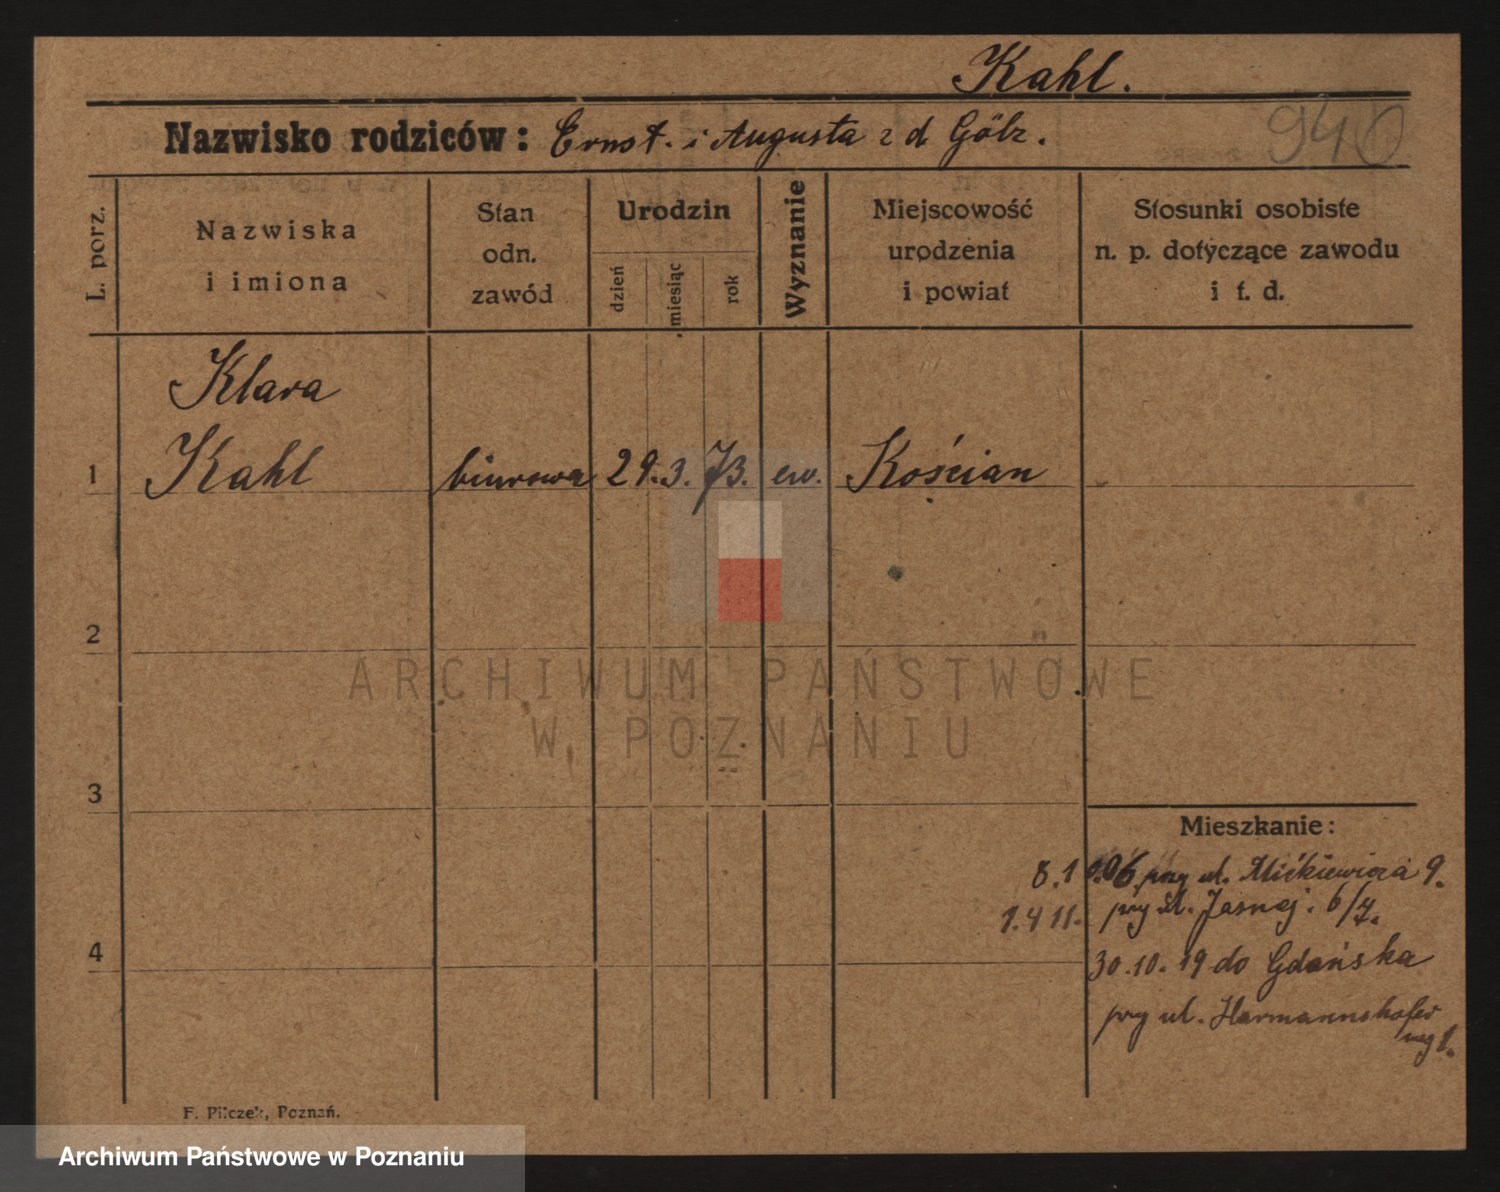 Kahl.
Nazwisko rodziców: Ernst. i Augusta z d Gölz.
940
L. porz.
Nazwiska
i imiona
Stan
odn.
zawód
Urodzin
dzień
miesiąc
rok
Wyznanie
Miejscowość
urodzenia
i powiat
Stosunki osobiste
n. p. dotyczące zawodu
i t. d.
Klara
1 Kahl biurowa 29. 3. 73. ew. Kościan
2
ARCHIWUM PAŃSTWOWE
W POZNANIU
3
Mieszkanie:
8.10.06 przy ul. Mickiewicza 9.
1.4 11. przy ul. Jasnej. 6/7.
4
30.10. 19 do Gdańska
przy ul. Hermannshofer
weg 1.
F. Pilczek, Poznań.
Archiwum Państwowe w Poznaniu